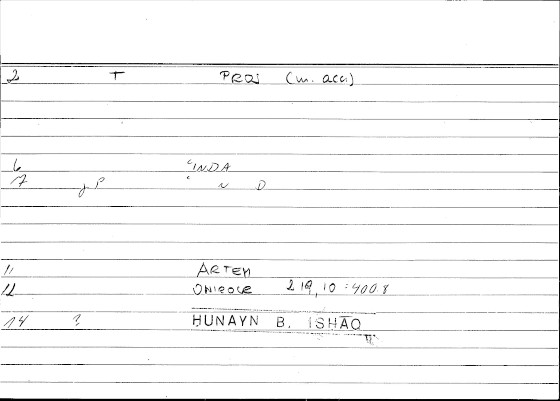 2 T PROS (m. acc)
6 ʿINDA
7 γ P ʿ N D
11 ARTEM
12 ONIROCR 219,10 : 400 8
14 ? HUNAYN B. ISHĀQ